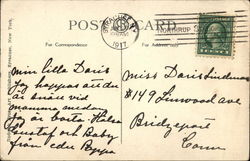 POST CARD
SYRACUSE, N.Y.
1917
NORTHRUP
For Correspondence
For Address only
Min lilla Doris
Jag hoppas av du
är snäll vid
mamma
Jag är borta. Hälsa
Gustaf och Baby
från eder Pappa
Miss Doris Lindmar
#149 Linwood ave
Bridgeport
Conn